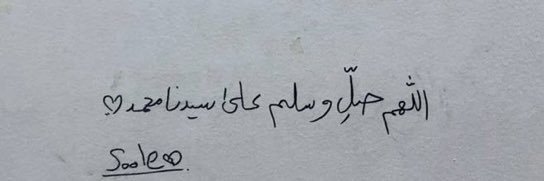 اللهم صلِّ وسلم على سيدنا محمد ♡
Soole∞